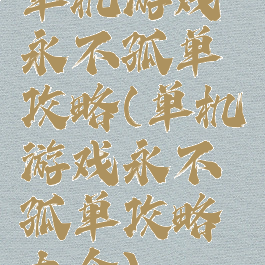 单机游戏
永不孤单
攻略(单机
游戏永不
孤单攻略
大全)